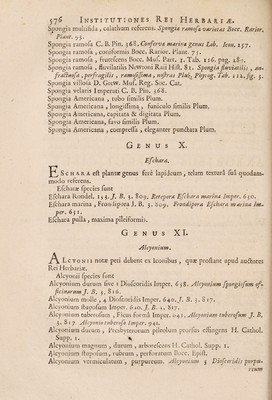 576 INSTITUTIONES REI HERBARIÆ.
Spongia multifida, calathum referens. Spongia ramosa varietas Bocc. Rarior.
Plant. 75.
Spongia ramosa C. B. Pin. 368. Conferva marina genus Lob. Icon. 257.
Spongia ramosa, coniformis Bocc. Rarior. Plant. 75.
Spongia ramosa, frutescens Bocc. Mus. Part. 3. Tab. 116. pag. 289.
Spongia ramosa, fluviatilis Newtoni Raii Hist. 81. Spongia fluviatilis, an-
fractuosa, perfragilis, ramosissima, nostras Pluk. Phytog. Tab. 112. fig. 3.
Spongia villosa D. Grew. Mus. Reg. Soc. Cat.
Spongia velaris Imperati C. B. Pin. 368.
Spongia Americana, tubo similis Plum.
Spongia Americana, longissima, funiculo similis Plum.
Spongia Americana, capitata & digitata Plum.
Spongia Americana, favo similis Plum.
Spongia Americana, compressa, eleganter punctata Plum.
GENUS X.
Eschara.
ESCHARA est plantæ genus ferè lapideum, telam texturâ suâ quodam-
modo referens.
Escharæ species sunt
Eschara Rondel. 133. J. B. 3. 809. Retepora Eschara marina Imper. 630.
Eschara marina, Frondipora J. B. 3. 809. Frondipora Eschara marina Im-
per. 631.
Eschara pulla, maxima pileiformis.
GENUS XI.
Alcyonium.
ALCYONII notæ peti debent ex Iconibus, quæ prostant apud auctores
Rei Herbariæ.
Alcyonii species sunt
Alcyonium durum sive 1 Dioscoridis Imper. 638. Alcyonium spongiosum of-
ficinarum J. B. 3. 816.
Alcyonium molle, 4 Dioscoridis Imper. 640. J. B. 3. 817.
Alcyonium stuposum Imper.
Alcyonium tuberosum, Ficus formâ Imper. 641. Alcyonium tuberosum J. B.
3. 817. Alcyonio tuberoso Imper. 641.
Alcyonium durum, Presbyterorum pileolum penitus effingens H. Cathol.
Supp. 1.
Alcyonium magnum, durum, arborescens H. Cathol. Supp. 1.
Alcyonium stuposum, rubrum, perforatum Bocc. Epist.
Alcyonium vermiculatum, purpureum. Alcyonium 3 Dioscoridis purpu-
reum